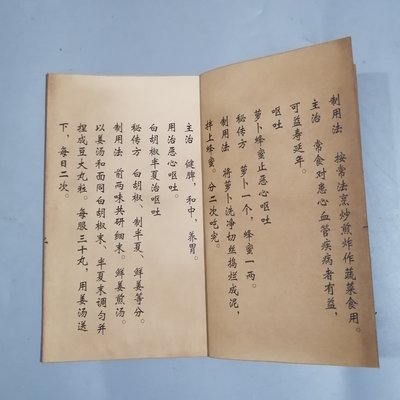 制用法 按常法烹炒煎炸作蔬菜食用。
主治 常食对患心血管疾病者有益，
可益寿延年。
呕吐
萝卜蜂蜜止恶心呕吐
秘传方 萝卜一个，蜂蜜一两。
制用法 将萝卜洗净切丝捣烂成泥，
拌上蜂蜜。分二次吃完。
主治 健脾，和中，养胃。
用治恶心呕吐。
白胡椒半夏治呕吐
秘传方 白胡椒、制半夏、鲜姜等分。
制用法 前两味共研细末。鲜姜煎汤。
以姜汤和面同白胡椒末、半夏末调匀并
捏成豆大丸粒。每服三十丸，用姜汤送
下，每日二次。